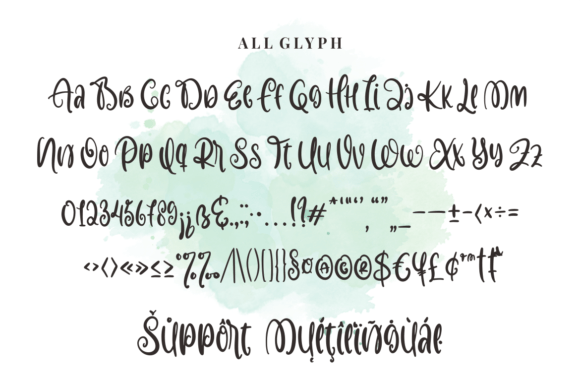 ALL GLYPH
Aa Bb Cc Dd Ee Ff Gg Hh Ii Jj Kk Ll Mm
Nn Oo Pp Qq Rr Ss Tt Uu Vv Ww Xx Yy Zz
0123456789¡¿ß&.,:;·…!?#*'"“‘’ “” , „_—–±-<×÷=
‹›()«»≤≥°%‰/|\()[]{}§¤@©®$€¥£¢ªᵐ†‡
Support Multilingual